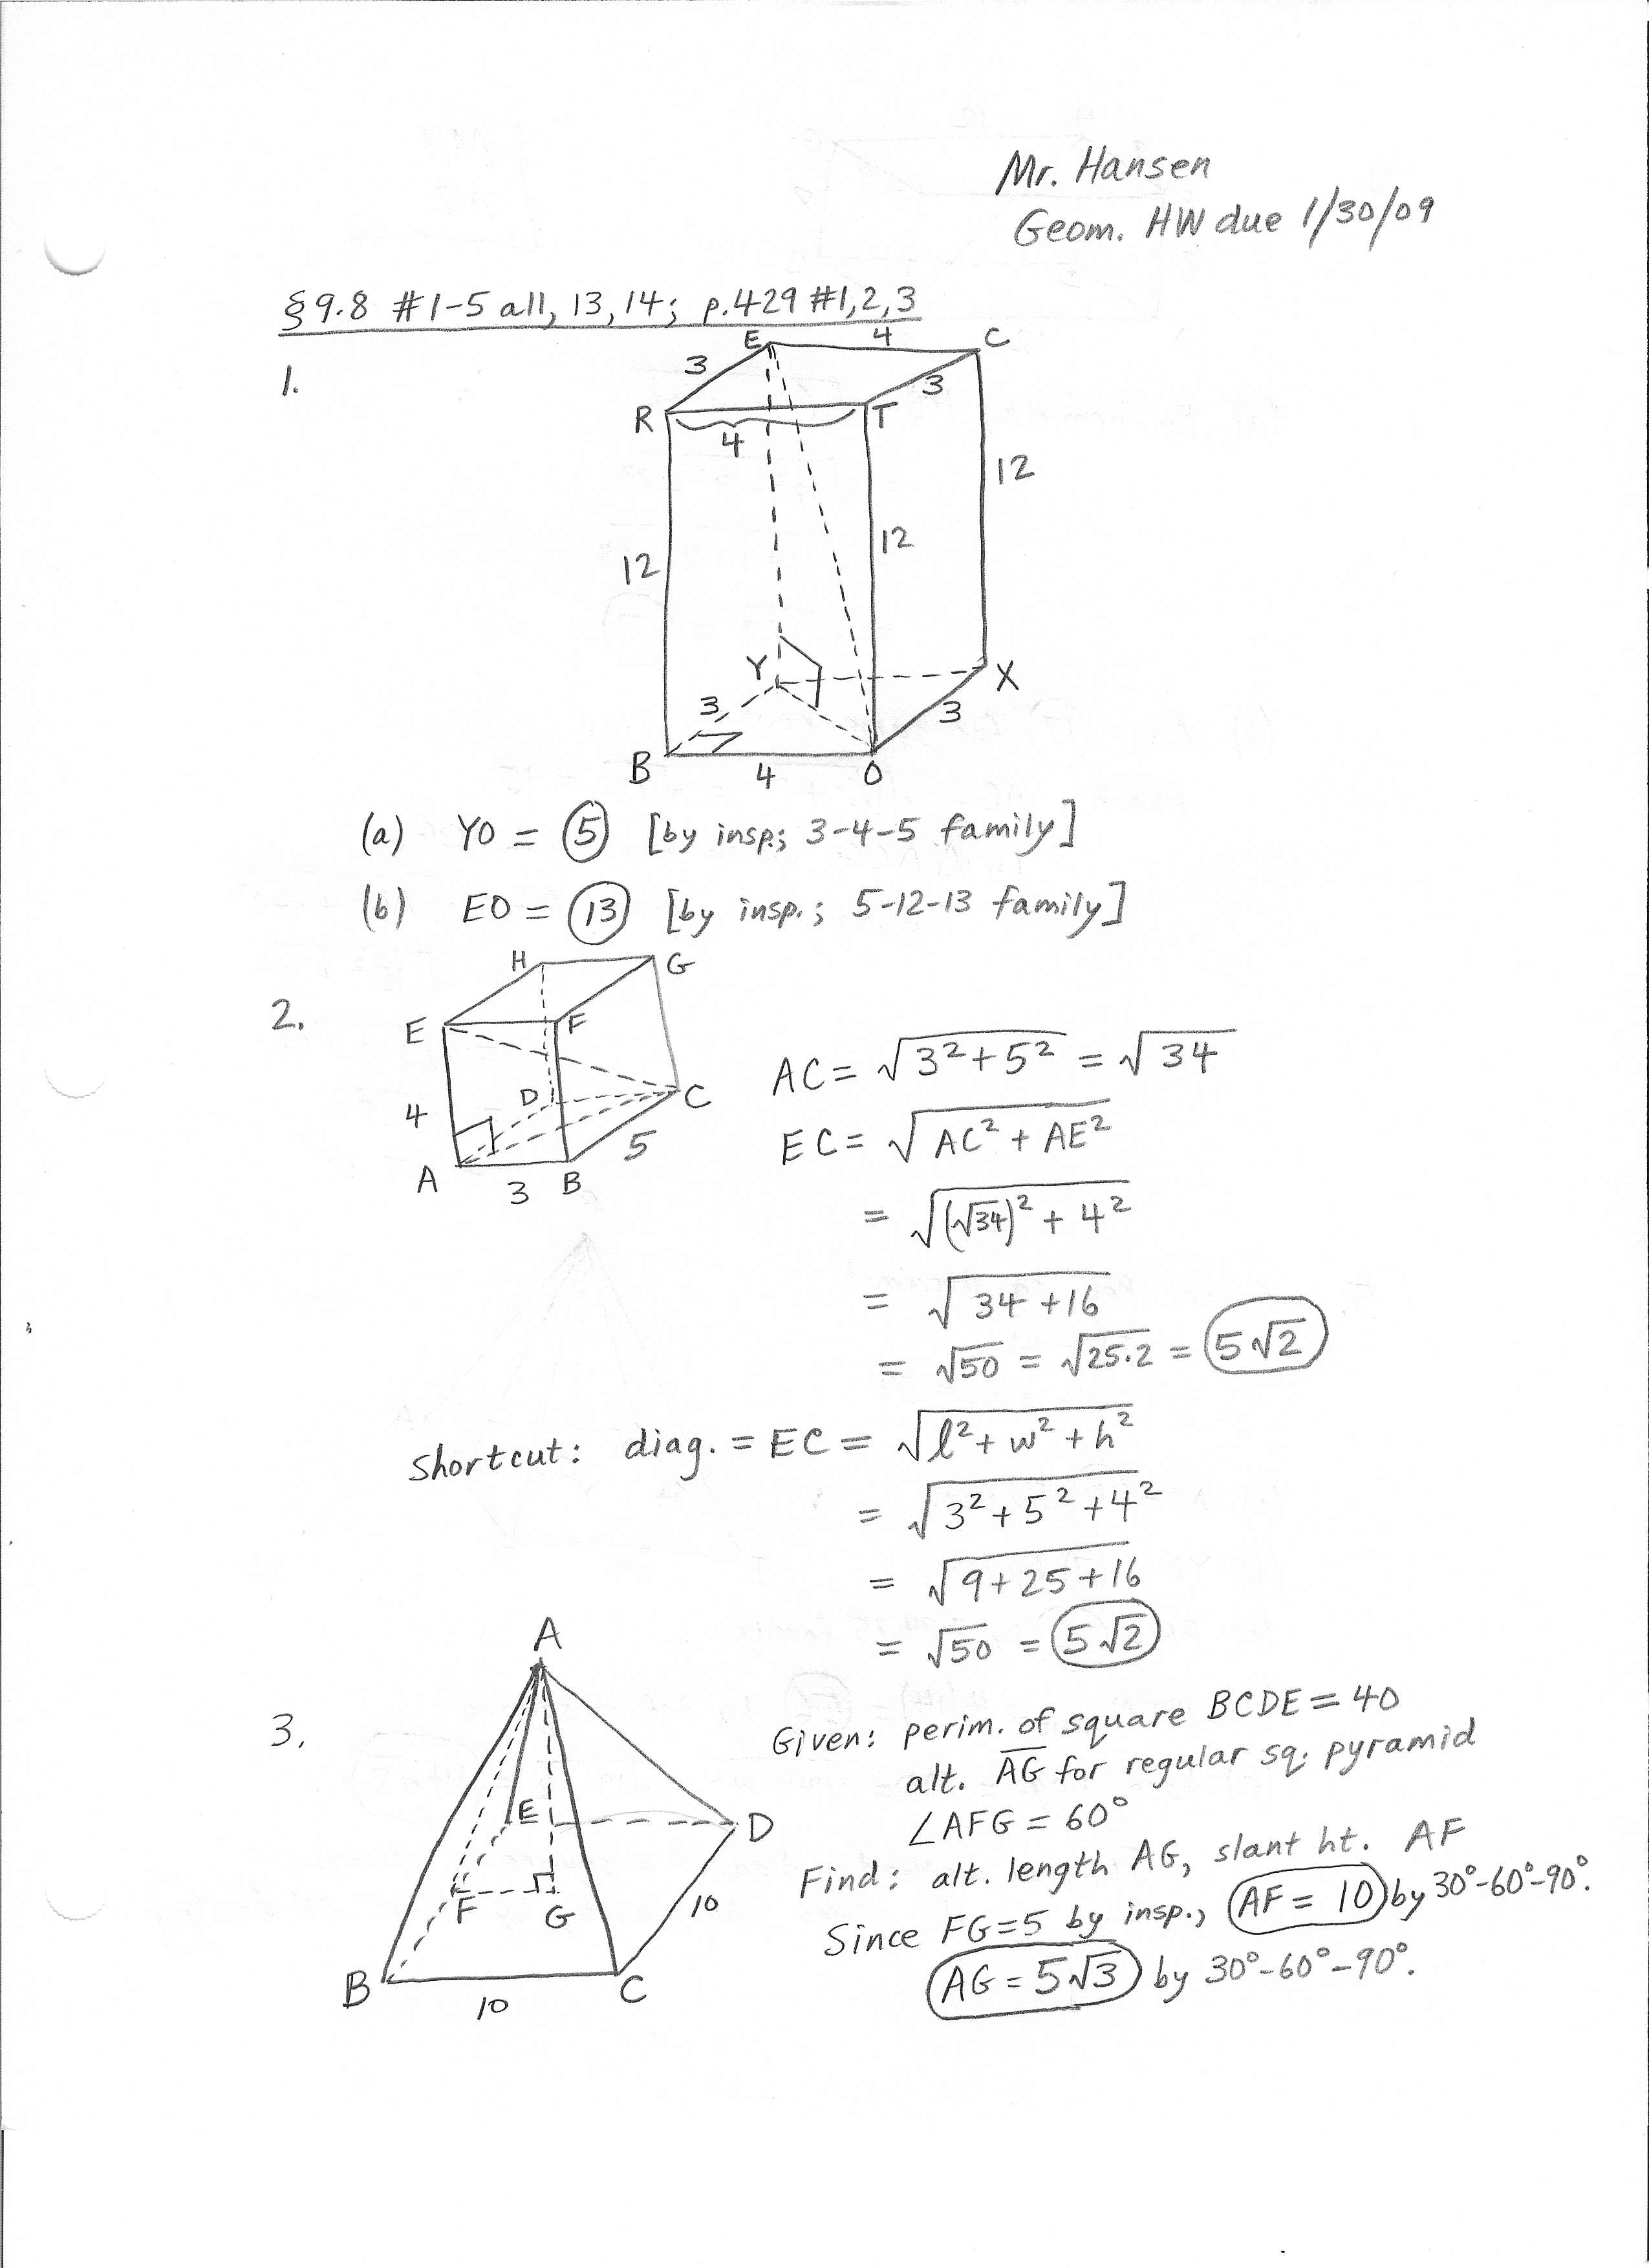 Mr. Hansen
Geom. HW due 1/30/09
§9.8 #1-5 all, 13, 14; p.429 #1,2,3
1.
E 4 C
3 3
R T
4
12
12
12
Y X
3 3
B 4 O
(a) YO = 5 [by insp.; 3-4-5 family]
(b) EO = 13 [by insp.; 5-12-13 family]
2.
H G
E F
D C
4
5
A 3 B
AC = √3²+5² = √34
EC = √AC² + AE²
= √(√34)² + 4²
= √34 + 16
= √50 = √25·2 = 5√2
Shortcut: diag. = EC = √l² + w² + h²
= √3² + 5² + 4²
= √9 + 25 + 16
= √50 = 5√2
3.
A
E D
F G 10
B 10 C
Given: perim. of square BCDE = 40
alt. AG for regular sq. pyramid
∠AFG = 60°
Find: alt. length AG, slant ht. AF
Since FG=5 by insp., AF = 10 by 30°-60°-90°.
AG = 5√3 by 30°-60°-90°.